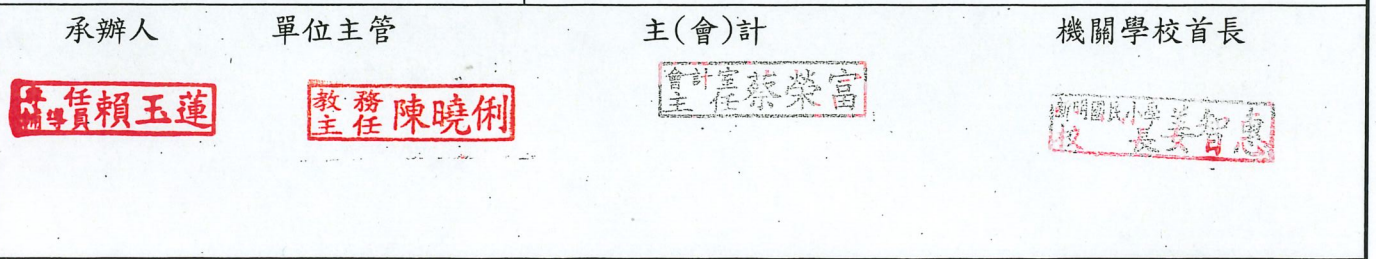 承辦人 單位主管 主(會)計 機關學校首長
專任輔導員 賴玉蓮
教務主任 陳曉俐
會計室主任 蔡榮富
新明國民小學校長 姜智惠